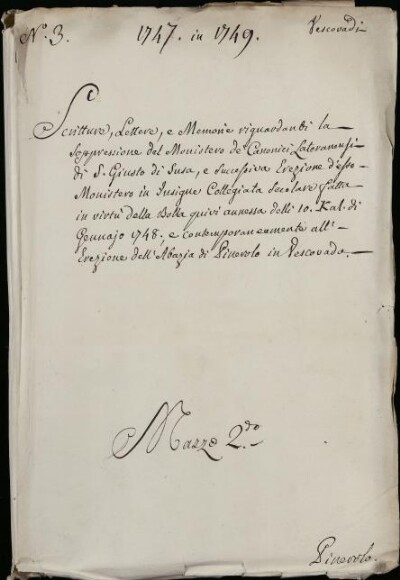 N.º 3. 1747. in 1749. Vescovadi
Scritture, Lettere, e Memorie riguardanti la
Soppressione del Monistero de' Canonici Lateranensi
di S. Giusto di Susa, e successiva Erezione d'esso
Monistero in Insigne Collegiata Secolare fatta
in virtù della Bolla quivi annessa delli 10. Kal. di
Gennajo 1748., e contemporaneamente all'
Erezione dell'Abazia di Pinerolo in Vescovado.
Mazzo 2.do
Pinerolo.